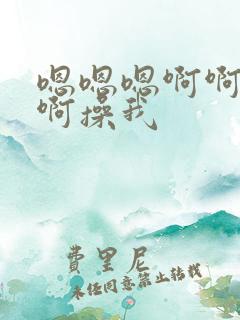 嗯嗯嗯啊啊
啊操我
费里尼
未经同意禁止转载